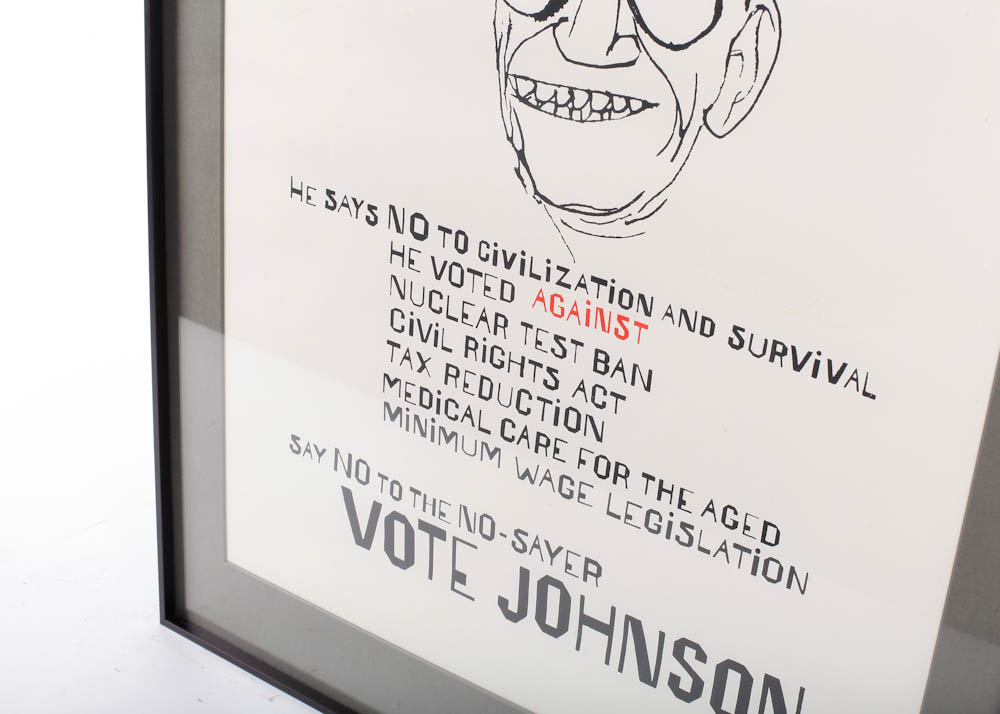 HE SAYS NO TO CiViLiZATiON AND SURViVAL
HE VOTED AGAiNST
NUCLEAR TEST BAN
CiViL RiGHTS ACT
TAX REDUCTiON
MEDiCAL CARE FOR THE AGED
MiNiMUM WAGE LEGiSLATiON
SAY NO TO THE NO-SAYER
VOTE JOHNSON